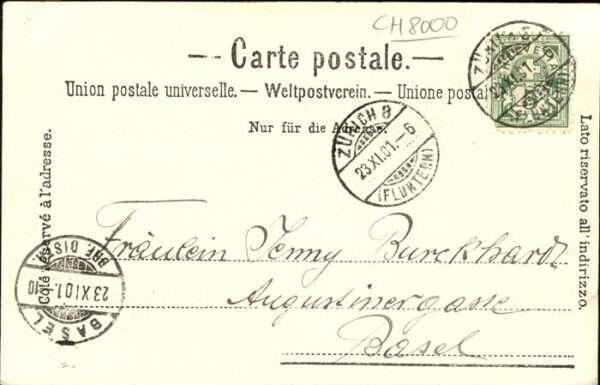 CH 8000
— Carte postale. —
Union postale universelle. — Weltpostverein. — Unione postale
Nur für die Adresse.
Côté réservé à l'adresse.
Lato riservato all'indirizzo.
ZÜRICH 8
23.XI.01.–6
(FLUNTERN)
Fräulein Jenny Burckhardt
Augustinergasse
Basel
BRF. DIST.
23.XI.01.–10
BASEL